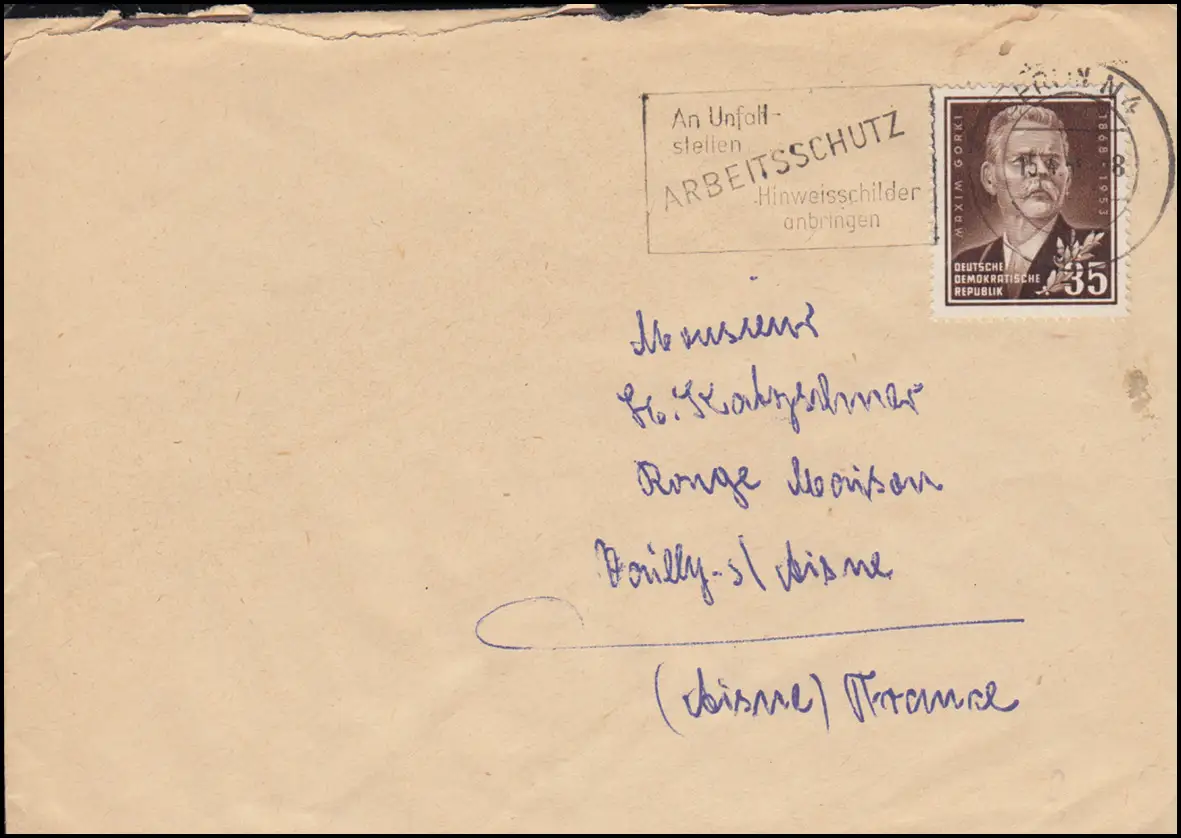 An Unfall-
stellen
ARBEITSSCHUTZ
Hinweisschilder
anbringen
BERLIN N 4
MAXIM GORKI
1868 · 1953
DEUTSCHE
DEMOKRATISCHE
REPUBLIK
35
Monsieur
Rouge Maison
s/Aisne
(Aisne) France